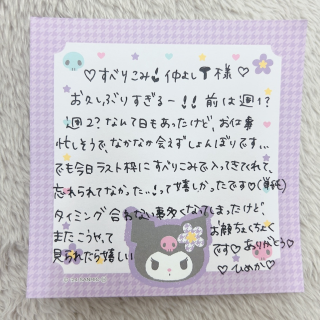 ♡すべりこみ!仲よしT様♡
お久しぶりすぎる〜!!前は週1?
週2?なんて日もあったけど、お仕事
忙しそうで、なかなか会えずしょんぼりです…
でも今日ラスト枠にすべりこみで入ってきてくれて、
忘れられてなかった..!って嬉しかったですの
タイミング合わない事多くなってしまったけど、
またこうやって
見られたら嬉しい
お顔ちょくちょく
です♡ありがとう♡
♡ひめか♡